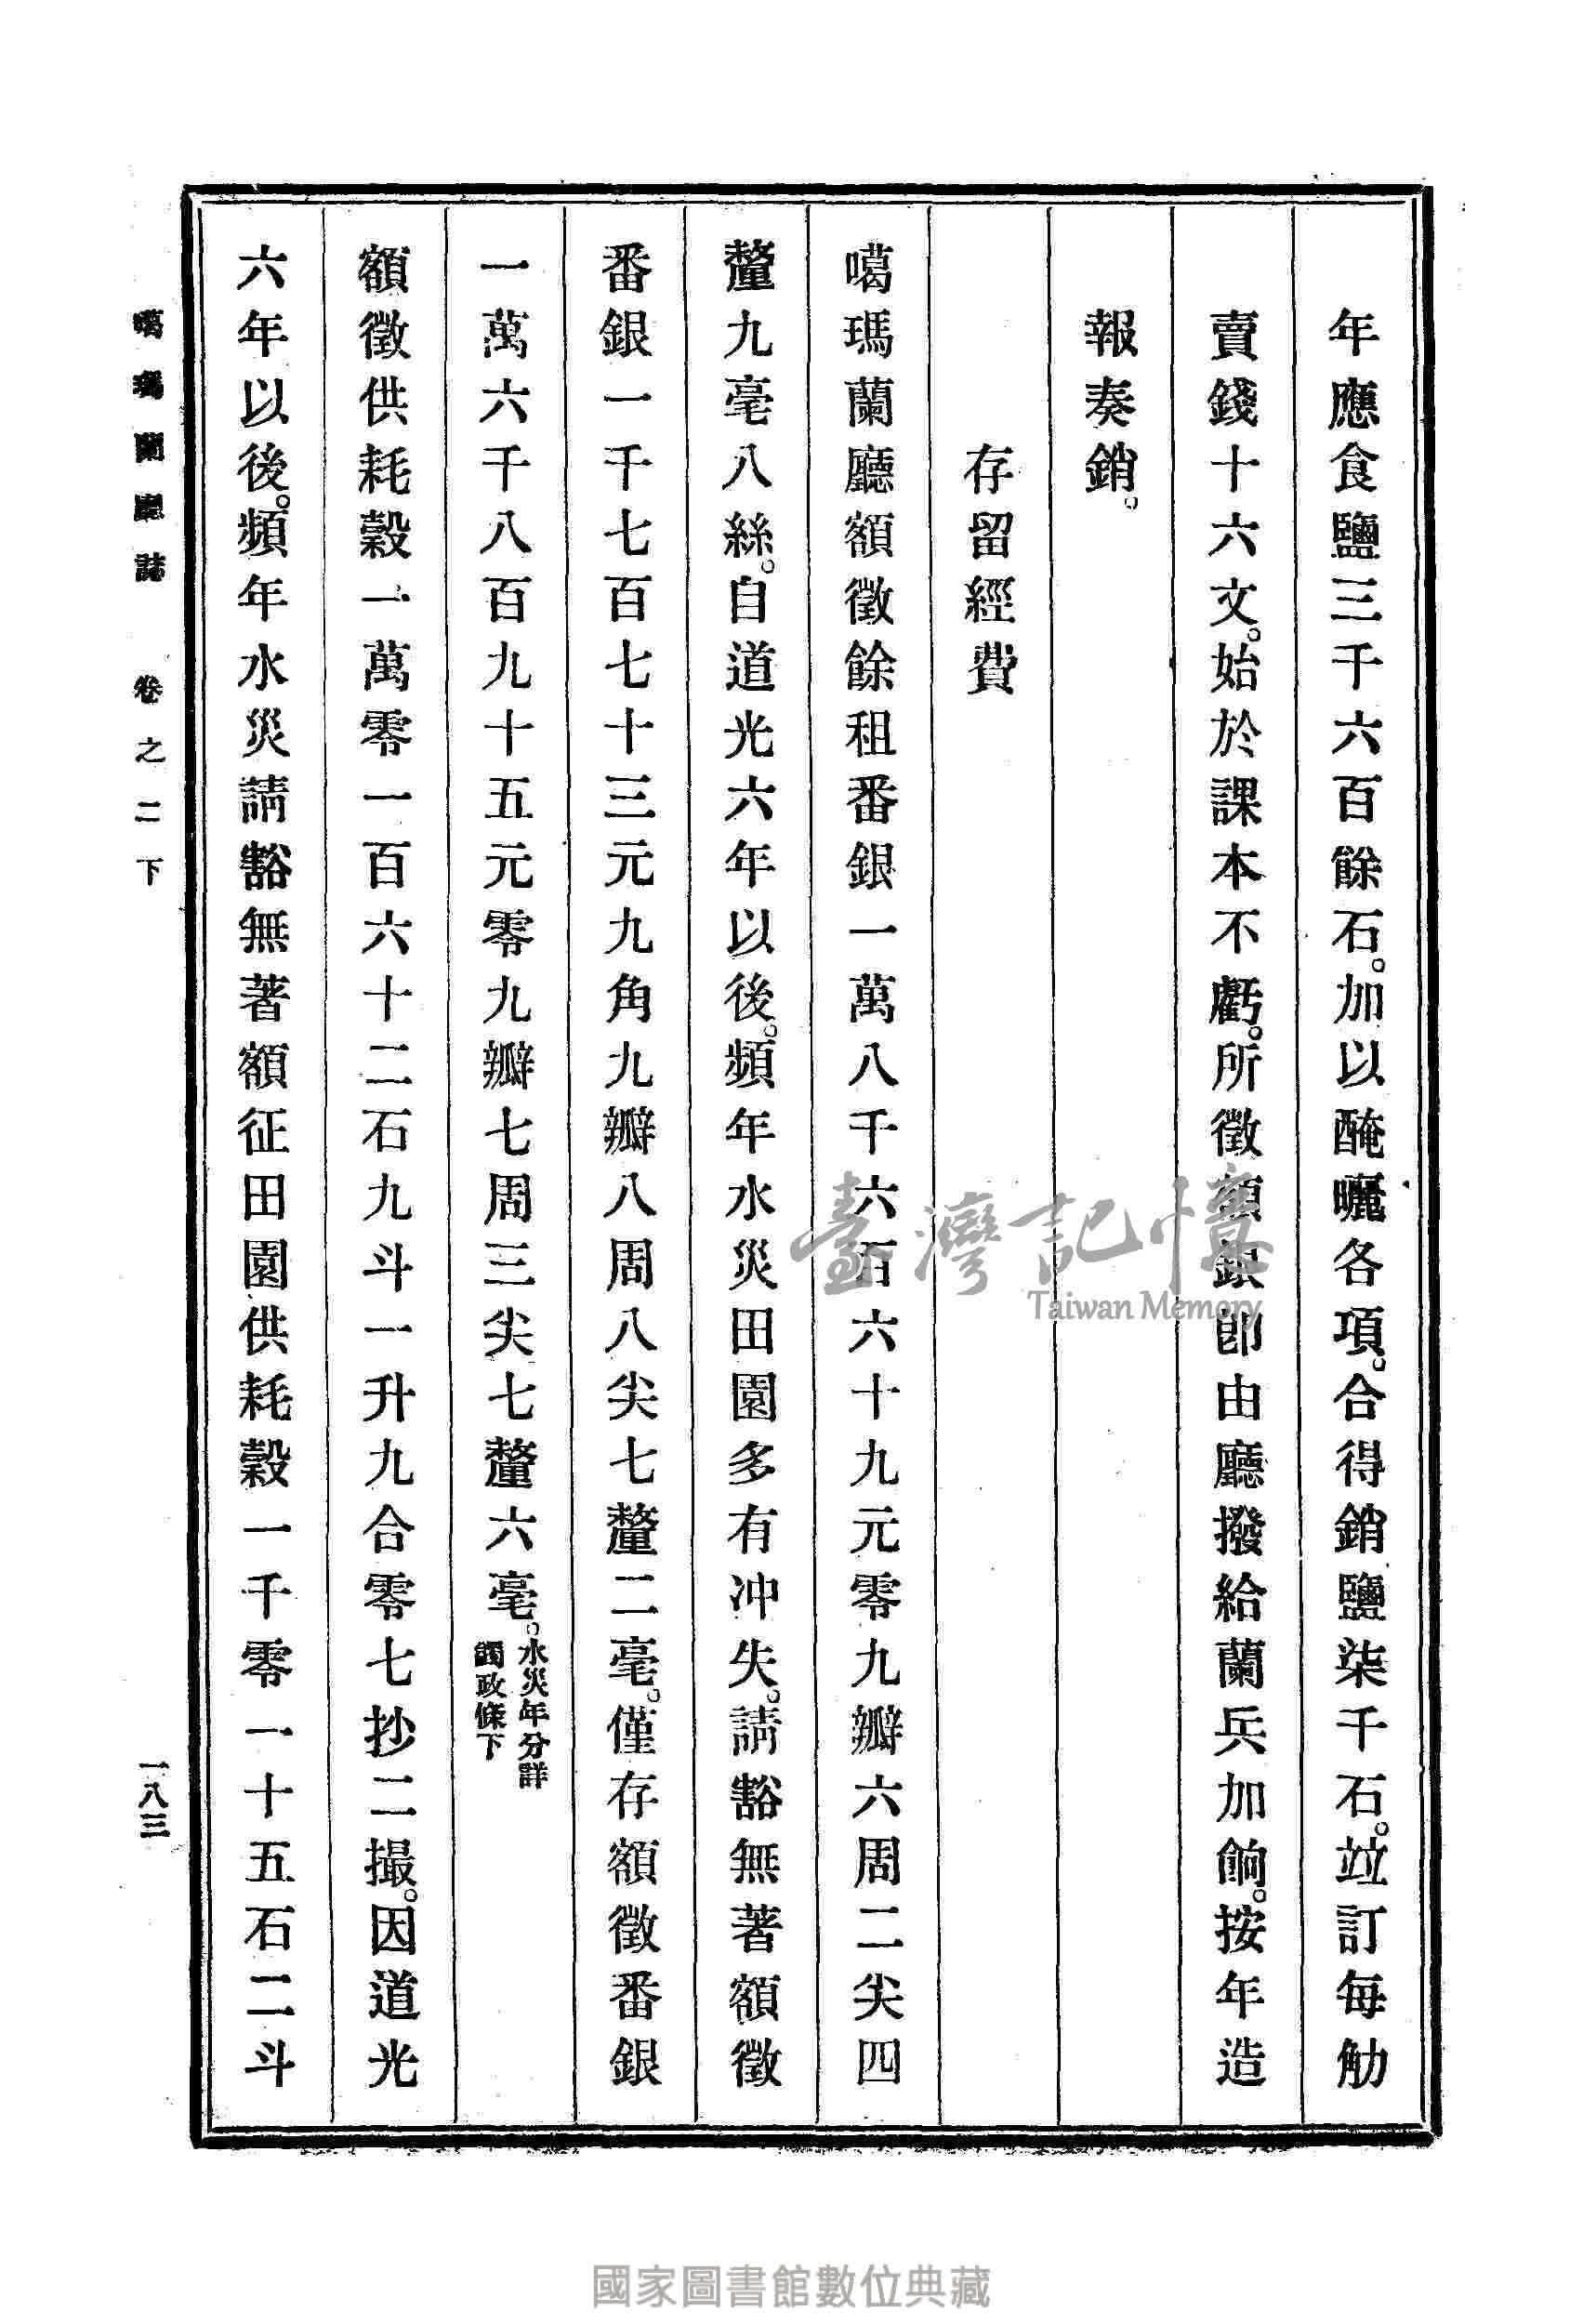 年應食鹽三千六百餘石。加以醃曬各項。合得銷鹽柒千石。竝訂每觔
賣錢十六文。始於課本不虧。所徵額銀卽由廳撥給蘭兵加餉。按年造
報奏銷。
存留經費
噶瑪蘭廳額徵餘租番銀一萬八千六百六十九元零九瓣六周二尖四
釐九毫八絲。自道光六年以後。頻年水災田園多有冲失。請豁無著額徵
番銀一千七百七十三元九角九瓣八周八尖七釐二毫。僅存額徵番銀
一萬六千八百九十五元零九瓣七周三尖七釐六毫。水災年分詳
蠲政條下
額徵供耗穀一萬零一百六十二石九斗一升九合零七抄二撮。因道光
六年以後。頻年水災請豁無著額征田園供耗穀一千零一十五石二斗
噶瑪蘭廳誌 卷之二下 一八三
臺灣記憶
Taiwan Memory
國家圖書館數位典藏